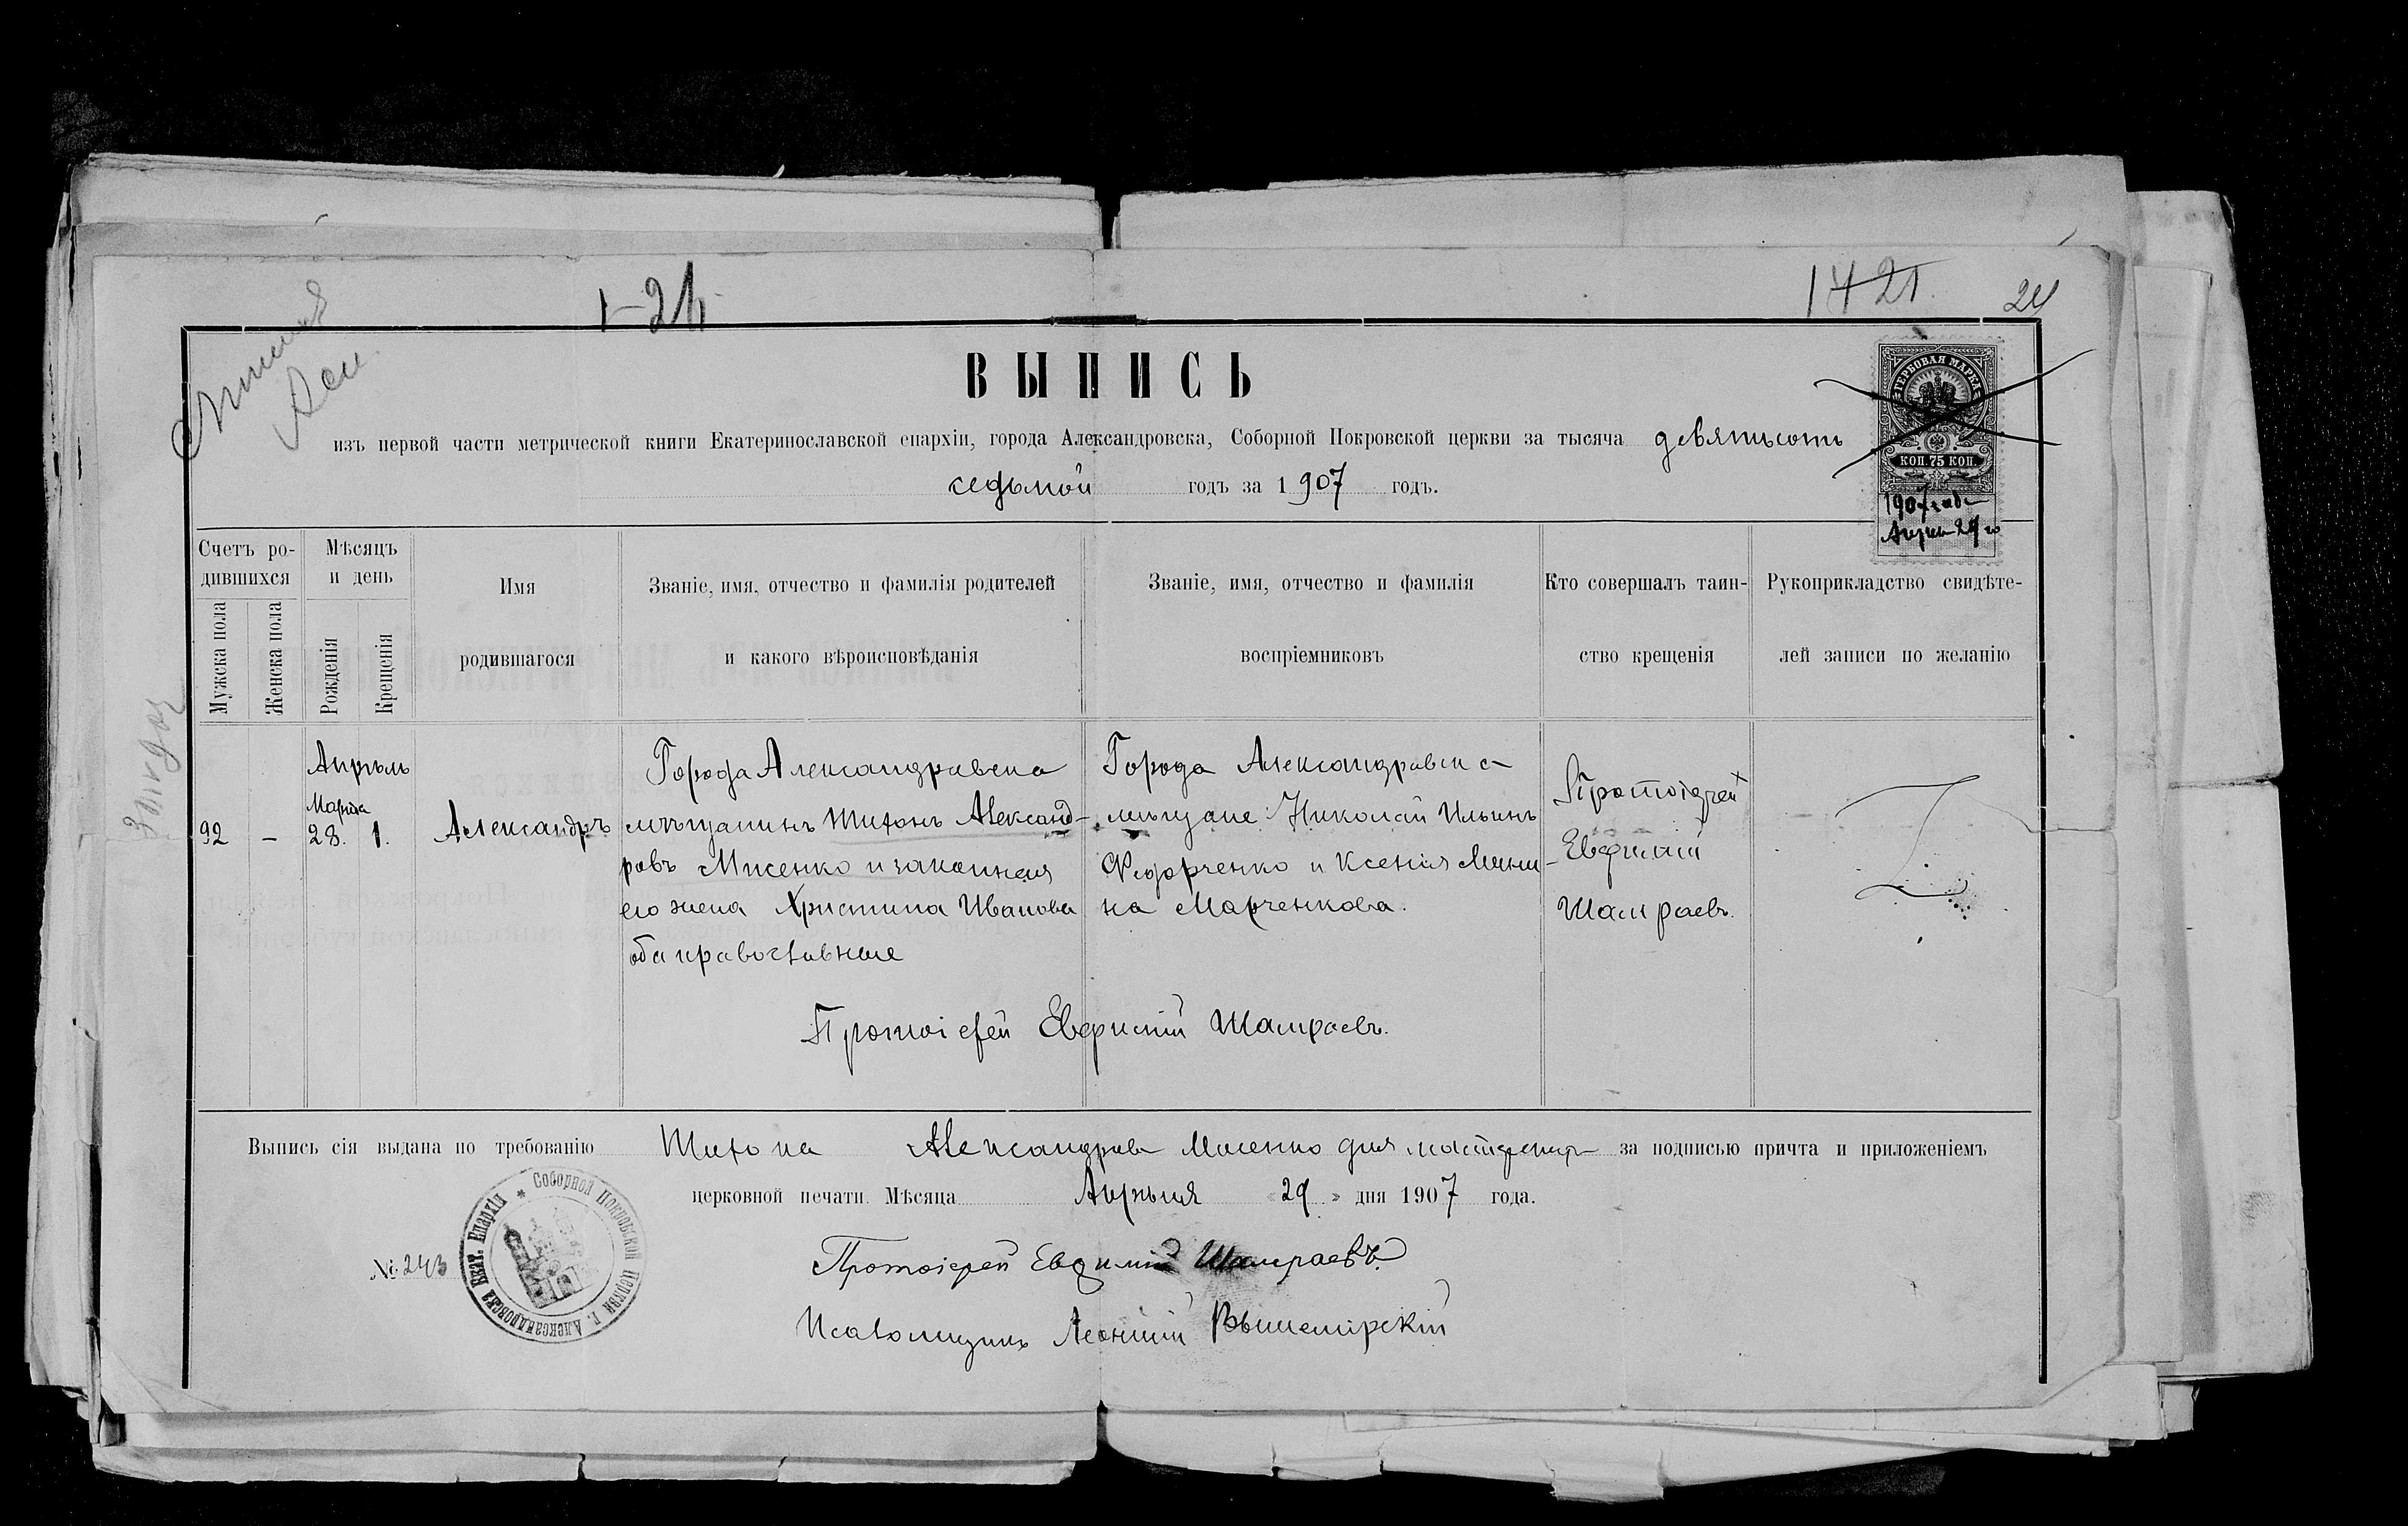 1-24
1421
24
ВЫПИСЬ
изъ первой части метрической книги Екатеринославской епархіи, города Александровска, Соборной Покровской церкви за тысяча девятьсотъ
седьмой годъ за 1907 годъ.
ГЕРБОВАЯ МАРКА
КОП. 75 КОП.
1907 года
Апреля 29 го
Счетъ ро-
дившихся
Мужска пола
Женска пола
Мѣсяцъ
и день
Рожденія
Крещенія
Имя
родившагося
Званіе, имя, отчество и фамилія родителей
и какого вѣроисповѣданія
Званіе, имя, отчество и фамилія
воспріемниковъ
Кто совершалъ таин-
ство крещенія
Рукоприкладство свидѣте-
лей записи по желанію
92
—
Апрѣль
Марта
28. 1.
Александръ
Города Александровска
мѣщанинъ Тихонъ Александ-
ровъ Мисенко и законная
его жена Христина Иванова
оба православные
Города Александровска
мѣщане: Николай Ильинъ
Федорченко и Ксенія
Марченкова.
Протоіерей
Евфимій
Шамраевъ.
Протоіерей Евфимій Шамраевъ.
Выпись сія выдана по требованію Тихона Александрова Мисенко для за подписью причта и приложеніемъ
церковной печати. Мѣсяца Апрѣля « 29 » дня 1907 года.
№ 243
Соборной Покровской Церкви г. Александровска Екат. Епархіи
Протоіерей Евфимій Шамраевъ
Псаломщикъ Леонтій Вышемірскій